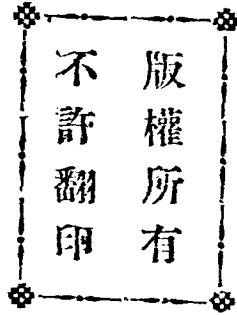 版權所有
不許翻印